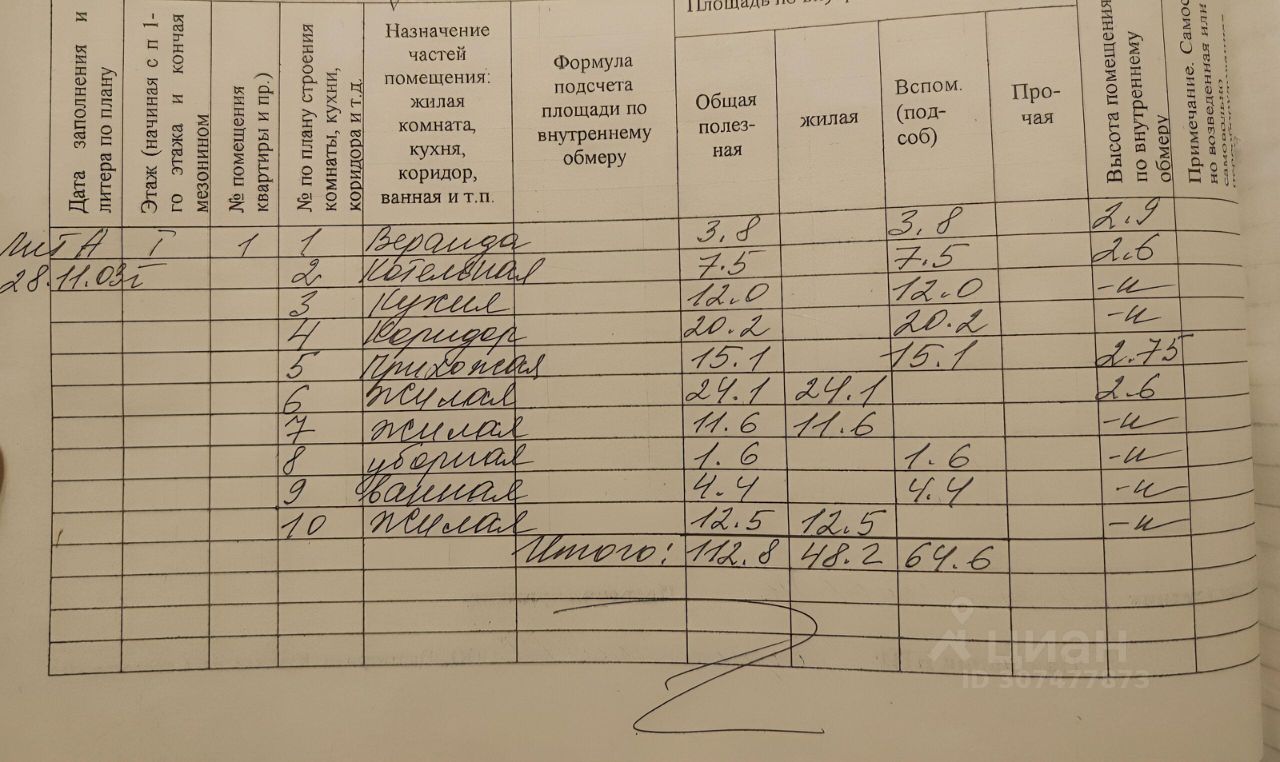 Площадь по внут
Дата заполнения и литера по плану
Этаж (начиная с п 1-го этажа и кончая мезонином
№ помещения квартиры и пр.)
№ по плану строения комнаты, кухни, коридора и т.д.
Назначение
частей
помещения:
жилая
комната,
кухня,
коридор,
ванная и т.п.
Формула
подсчета
площади по
внутреннему
обмеру
Общая
полез-
ная
жилая
Вспом.
(под-
соб)
Про-
чая
Высота помещения по внутреннему обмеру
Примечание. Самос
но возведенная или
Лит А I 1 1 Веранда 3.8 3.8 2.9
28.11.03г 2 Котельная 7.5 7.5 2.6
3 Кухня 12.0 12.0 -и
4 Коридор 20.2 20.2 -и
5 Прихожая 15.1 15.1 2.75
6 Жилая 24.1 24.1 2.6
7 Жилая 11.6 11.6 -и
8 уборная 1.6 1.6 -и
9 ванная 4.4 4.4 -и
10 Жилая 12.5 12.5 -и
Итого: 112.8 48.2 64.6
ЦИАН
ID 307477873